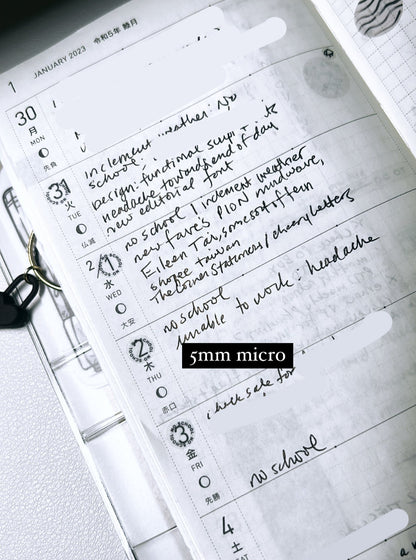 1 JANUARY 2023 令和5年 睦月
30
月
MON
先負
Inclement weather: No
school.
31
火
TUE
仏滅
Design: functional support site
headache towards end of day
new editorial font
no school / inclement weather
new faves: PION mudwave,
2/1
水
WED
大安
Eileen Tai, somesortiffern
shopee taiwan
The Corner Stationers / cheery letters
no school
unable to work: headache
2
木
THU
赤口
5mm micro
check sale for
3
金
FRI
先勝
no school
4
土
SAT